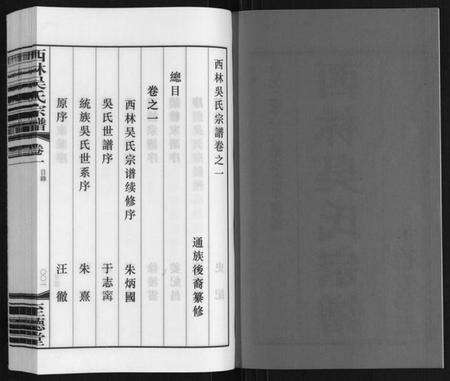 西林吳氏宗譜卷之一
通族後裔纂修
總目
卷之一
西林吳氏宗谱续修序 朱炳國
吳氏世譜序 于志寕
統族吳氏世系序 朱熹
原序 汪徹
西林吳氏宗譜 卷一 目錄 至德堂